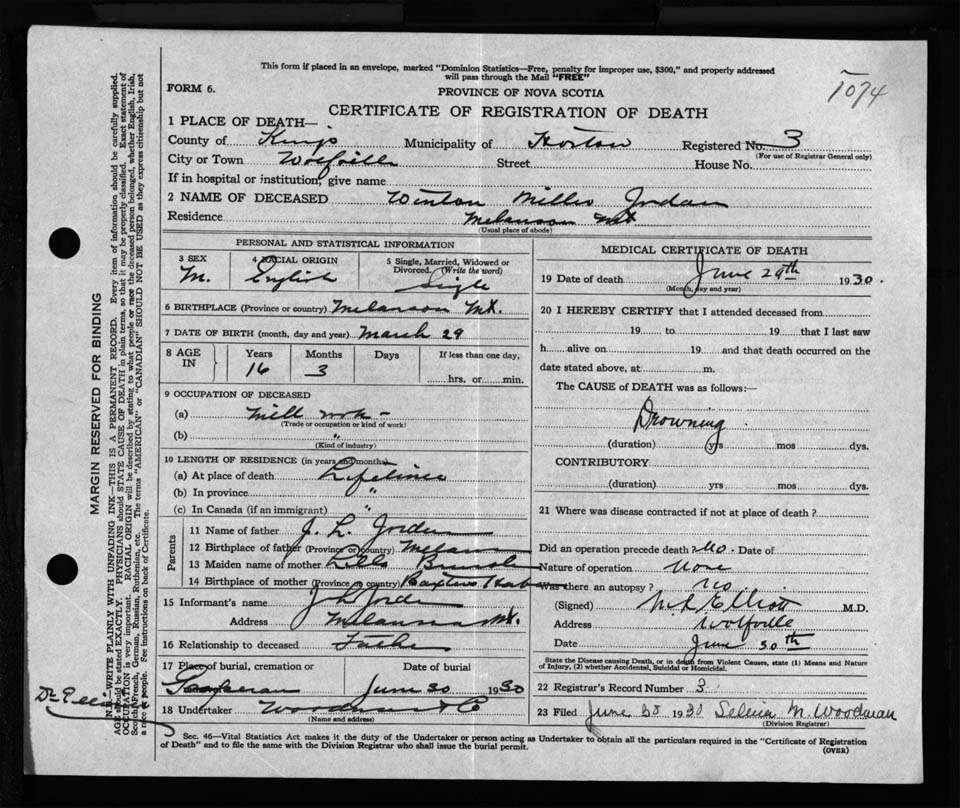 This form if placed in an envelope, marked "Dominion Statistics—Free, penalty for improper use, $300," and properly addressed
will pass through the Mail "FREE"
1074
FORM 6.
PROVINCE OF NOVA SCOTIA
CERTIFICATE OF REGISTRATION OF DEATH
1 PLACE OF DEATH—
County of Kings Municipality of Horton Registered No. 3
(For use of Registrar General only)
City or Town Wolfville Street House No.
If in hospital or institution, give name
2 NAME OF DECEASED Winton Miller Jordan
Residence Melanson Mt
(Usual place of abode)
PERSONAL AND STATISTICAL INFORMATION
3 SEX 4 RACIAL ORIGIN 5 Single, Married, Widowed or
Divorced. (Write the word)
M. English Single
6 BIRTHPLACE (Province or country) Melanson Mt.
7 DATE OF BIRTH (month, day and year) March 29
8 AGE IN Years Months Days If less than one day,
16 3 hrs. or min.
9 OCCUPATION OF DECEASED
(a) Mill work -
(Trade or occupation or kind of work)
(b) "
(Kind of industry)
10 LENGTH OF RESIDENCE (in years and months)
(a) At place of death Lifetime
(b) In province "
(c) In Canada (if an immigrant) "
Parents
11 Name of father J. L. Jorden
12 Birthplace of father (Province or country) Melanson
13 Maiden name of mother
14 Birthplace of mother (Province or country) Baxters Harbour
15 Informant's name J L Jorden
Address Melanson Mt.
16 Relationship to deceased Father
17 Place of burial, cremation or Date of burial
Gaspereau June 30 1930
18 Undertaker Woodman & Co
(Name and address)
MEDICAL CERTIFICATE OF DEATH
19 Date of death June 29th 1930.
(Month, day and year)
20 I HEREBY CERTIFY that I attended deceased from
19 to 19 that I last saw
h alive on 19 and that death occurred on the
date stated above, at m.
The CAUSE of DEATH was as follows:—
Drowning
(duration) yrs mos dys.
CONTRIBUTORY
(duration) yrs mos dys.
21 Where was disease contracted if not at place of death?
Did an operation precede death? No Date of
Nature of operation None
Was there an autopsy? No
(Signed) Elliott M.D.
Address Wolfville
Date June 30th
State the Disease causing Death, or in death from Violent Causes, state (1) Means and Nature
of Injury, (2) whether Accidental, Suicidal or Homicidal.
22 Registrar's Record Number 3
23 Filed June 30 1930 M. Woodman
(Division Registrar)
Sec. 46—Vital Statistics Act makes it duty of the Undertaker or person acting as Undertaker to obtain all the particulars required in the "Certificate of Registration
of Death" and to file the same with the Division Registrar who shall issue the burial permit.
(OVER)
MARGIN RESERVED FOR BINDING
N.B.—WRITE PLAINLY WITH UNFADING INK—THIS IS A PERMANENT RECORD. Every item of information should be carefully supplied.
AGE should be stated EXACTLY. PHYSICIANS should STATE CAUSE OF DEATH in plain terms, so that it may be properly classified. Exact statement of
OCCUPATION is very important. RACIAL ORIGIN will be described by stating to what people or race the deceased person belonged, whether English, Irish,
Scotch, French, German, Russian, Ruthenian, etc. The terms "AMERICAN" or "CANADIAN" SHOULD NOT BE USED as they express citizenship but not
a race or people. See instructions on back of Certificate.